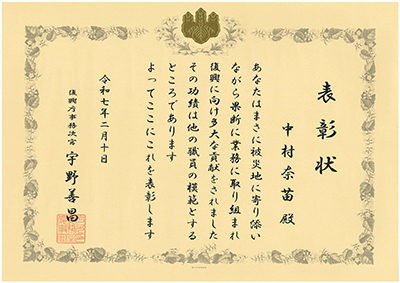 表彰状
中村奈苗 殿
あなたはまさに被災地に寄り添い
ながら果断に業務に取り組まれ
復興に向け多大な貢献をされました
その功績は他の職員の模範とする
ところであります
よってここにこれを表彰します
令和七年二月十日
復興庁事務次官 宇野善昌